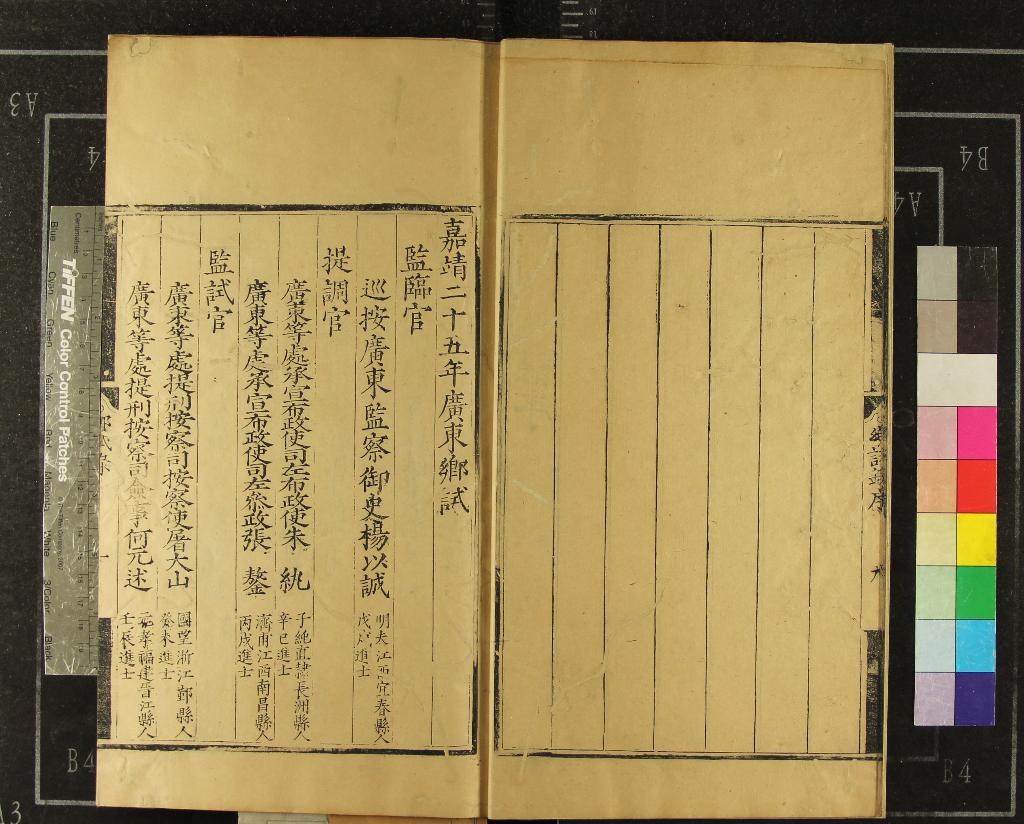 鄉試錄序
九
嘉靖二十五年廣東鄉試
監臨官
巡按廣東監察御史楊以誠 明夫江西宜春縣人
戊戌進士
提調官
廣東等處承宣布政使司左布政使朱紈 子純直隸長洲縣人
辛巳進士
廣東等處承宣布政使司左叅政張鏊 濟甫江西南昌縣人
丙戌進士
監試官
廣東等處提刑按察司按察使屠大山 國望浙江鄞縣人
癸未進士
廣東等處提刑按察司僉事何元述 孝福建晉江縣人
壬辰進士
鄉試錄
一
TIFFEN Color Control Patches
Blue
Cyan
Green
Yellow
Red
Magenta
White
3/Color
Black
A3
B4
A4
B4
B4
A3